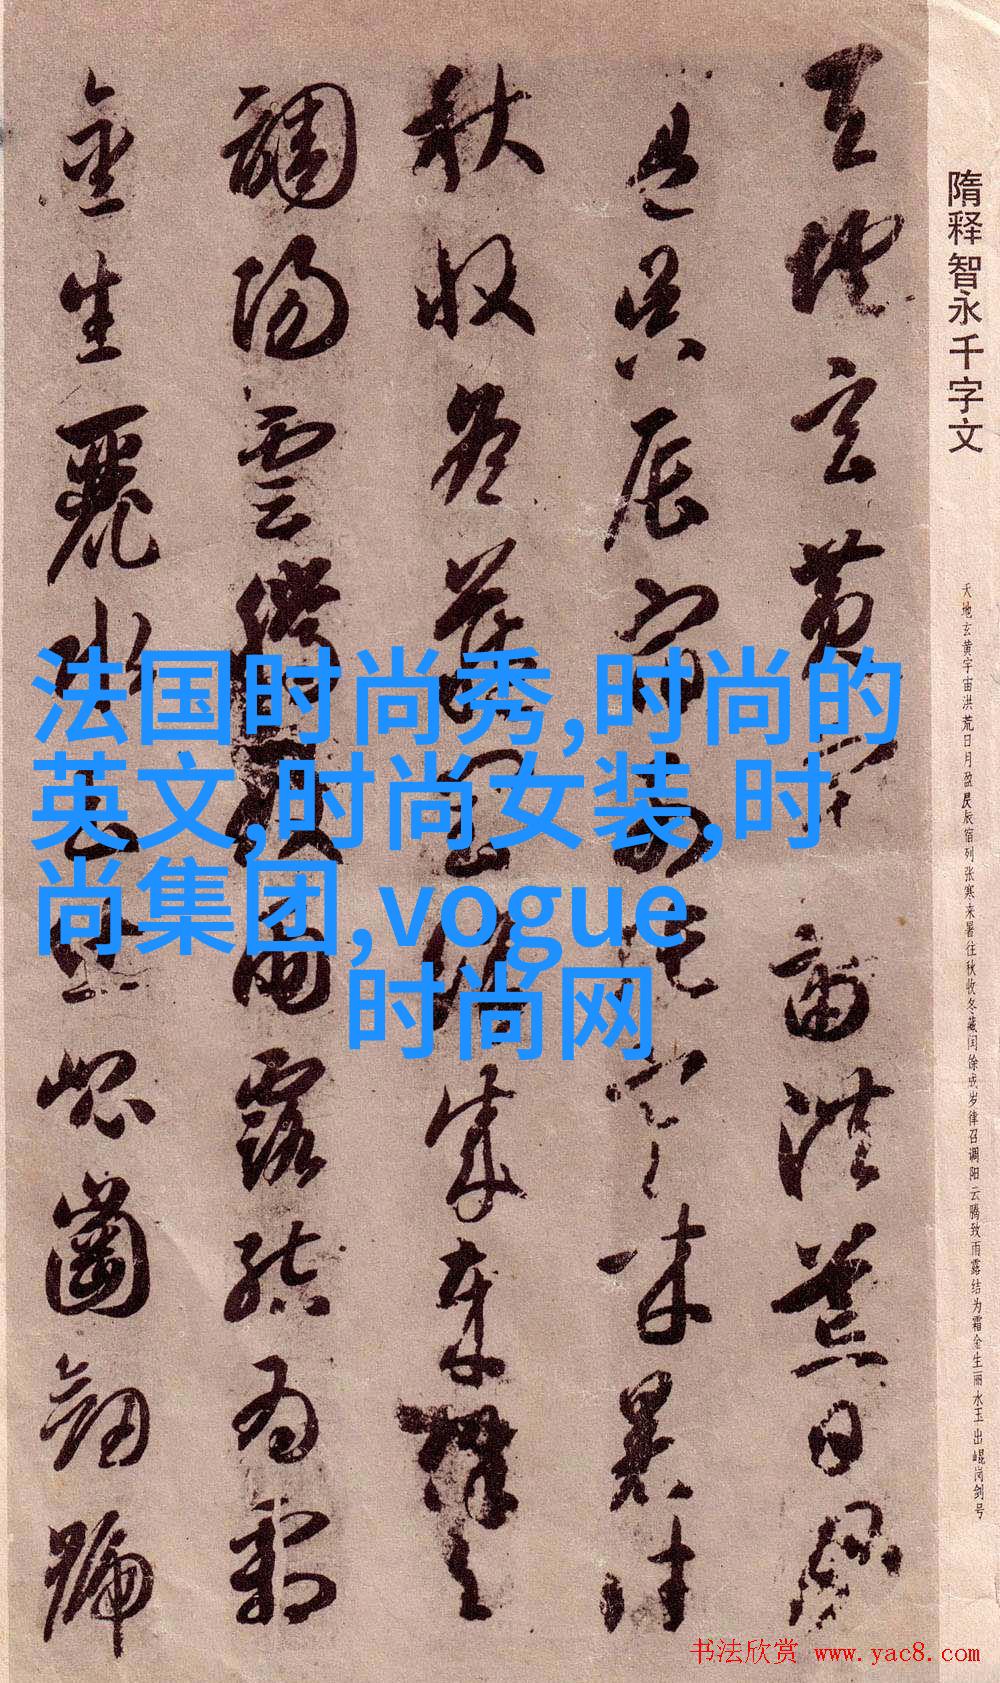 隋释智永千字文
天地玄黄宇宙洪荒日月盈昃辰宿列张寒来暑往秋收冬藏闰馀成岁律召调阳云腾致雨露结为霜金生丽水玉出崐岗剑号
天地玄黄宇宙洪荒日月
盈昃辰宿列張寒来暑往
秋收冬藏閏餘成歲律召
調陽雲騰致雨露結為霜
金生麗水玉出崑崗劍號
法国时尚秀,时尚的
英文,时尚女装,时
尚集团,vogue
时尚网
书法欣赏 www.yac8.com